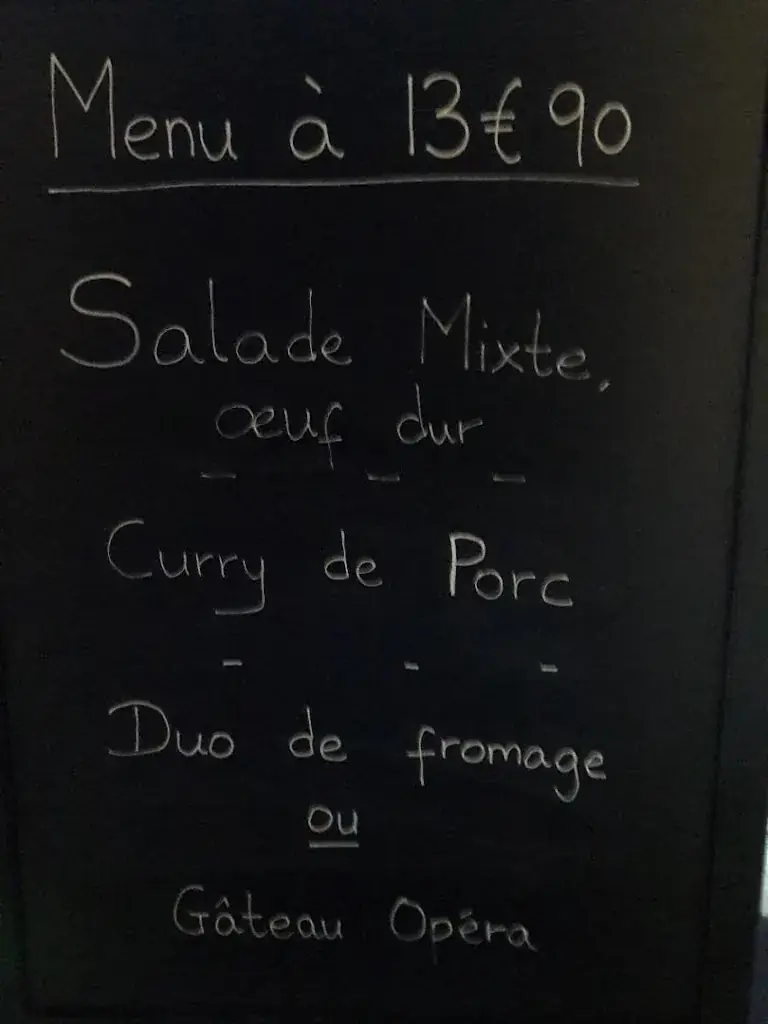 Menu à 13€90
Salade Mixte,
œuf dur
- - -
Curry de Porc
- - -
Duo de fromage
ou
Gâteau Opéra